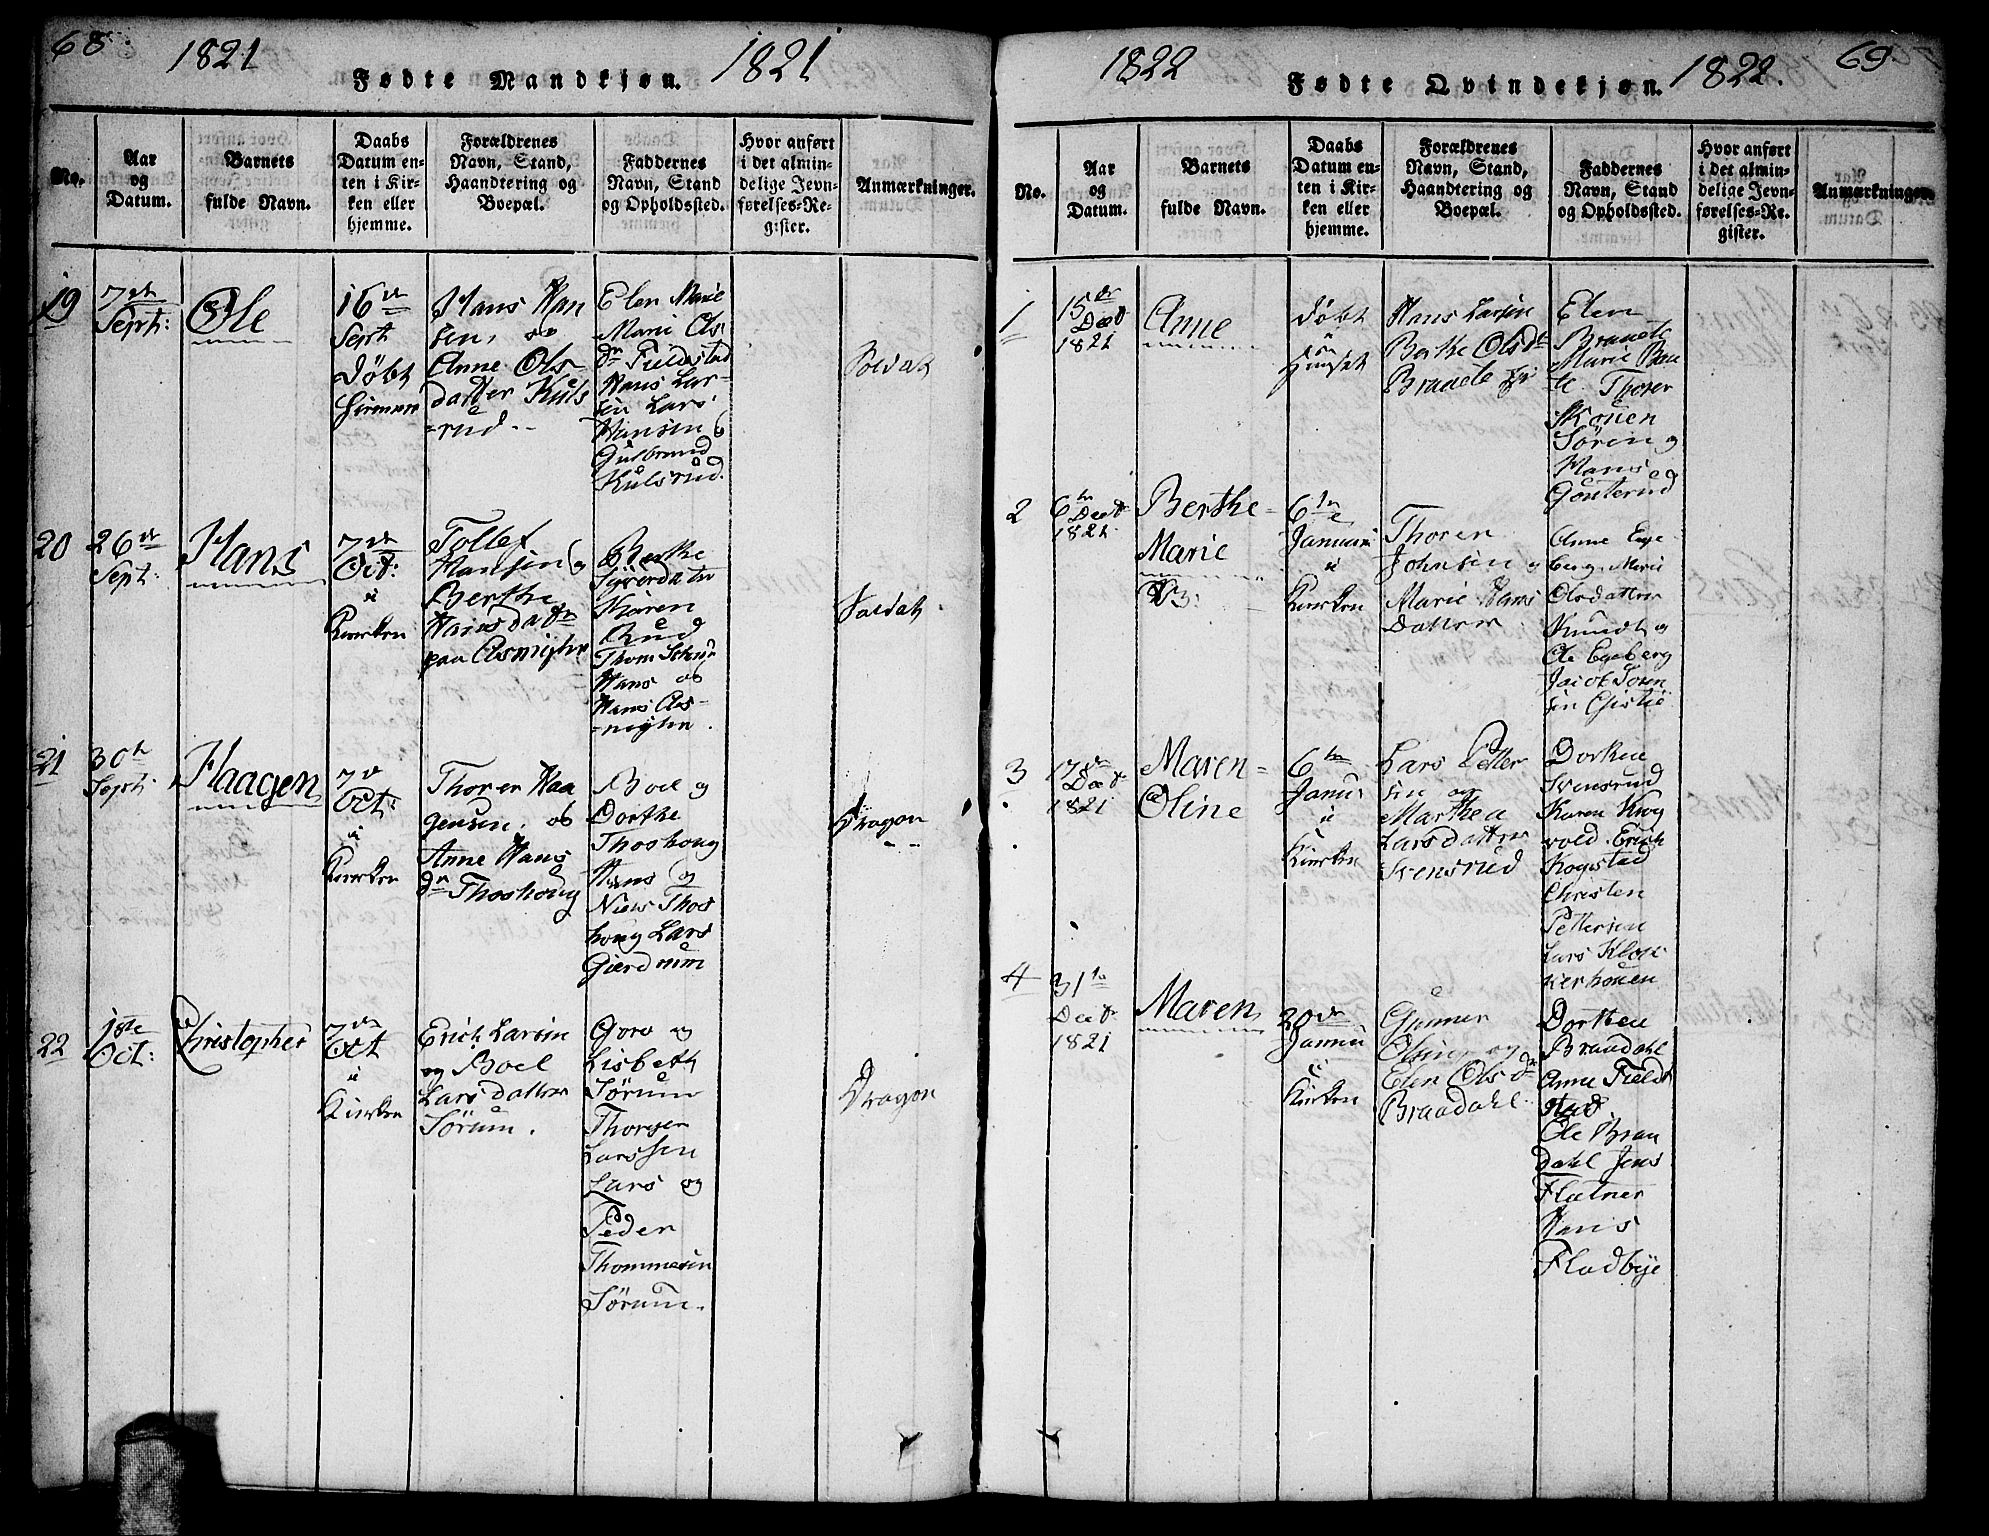 68.
1821
Fødte Mandkjøn.
1821
No.
Aar og Datum.
Barnets fulde Navn.
Daabs Datum enten i Kirken eller hjemme.
Forældrenes Navn, Stand, Haandtering og Boepæl.
Faddernes Navn, Stand og Opholdssted.
Hvor anført i det almindelige Jevnførelses-Register.
Anmærkninger.
19
7de
Sept:
Ole
16de
Sept
Døbt
Hans Han
sen, og
Anne Ols
datter Kuls
=rud.
Elen Marie
Marie Ols
dr Fieldstad
Hans Lar-
sen Lars
Hansen
Gulbrand
Kulsrud.
Soldat
20
26de
Sept:
Hans
7de
Oct:
i
Kirken
Tollef
Hansen og
Berthe
Hansdatr
paa Asmyhr
Berthe
Syverdatter
Karen
Rud
Thom
Hans og
Hans As-
=myhr.
Soldat
21
30te
Sept:
Haagen
7de
Oct:
i
Kirken
Thorer Haa
gensen, og
Anne Hans
dr Thoshoug
Boel og
Dorthe
Thoshoug
Hans og
Niels Thos
houg Lars
Gierdrum
Dragon
22
1ste
Oct:
Christopher
7de
Oct
i
Kirken
Erich Larsen
og Boel
Larsdatter
Sørum.
Goro og
Lisbeth
Sørum
Thorger
Larssen
Lars og
Peder
Thommesen
Sørum.
Dragon
1822
Fødte Qvindekjøn.
1822.
69.
No.
Aar og Datum.
Barnets fulde Navn.
Daabs Datum enten i Kirken eller hjemme.
Forældrenes Navn, Stand, Haandtering og Boepæl.
Faddernes Navn, Stand og Opholdssted.
Hvor anført i det almindelige Jevnførelses-Register.
Anmærkninger.
1
15de
Decbr
1821
Anne
Døbt
i
Huset
Hans Larsen
Berthe Olsdr
Braate
Elen
Braate
Marie Braa
te Thorer
Søren og
Hans
2
6te
Decbr
1821
Berthe=
Marie
6te
Januari
i
Kirken
Thorer
Johnsen og
Marie Hans
Datter
Anne Ege
berg Marie
Olsdatter
og
Ole Egeberg
Jacob Soren
sen
3
17de
Decbr
1821
Maren=
Oline
6te
Janu
i
Kirken
Lars Petter
sen og
Marthea
Larsdatter
Svensrud
Dorthe
Svensrud
Karen Krog
vold. Erich
Kogstad
Christen
Pettersen
Lars Klok
kerhouen
4
31te
Decbr
1821
Maren
20de
Janua
i
Kirken
Gunner
Olsen og
Elen Olsdr
Braadahl.
Dorthea
Braadahl
Anne Field
stad
Ole Braa
dahl Jens
Flatner
Hans
Fladbye